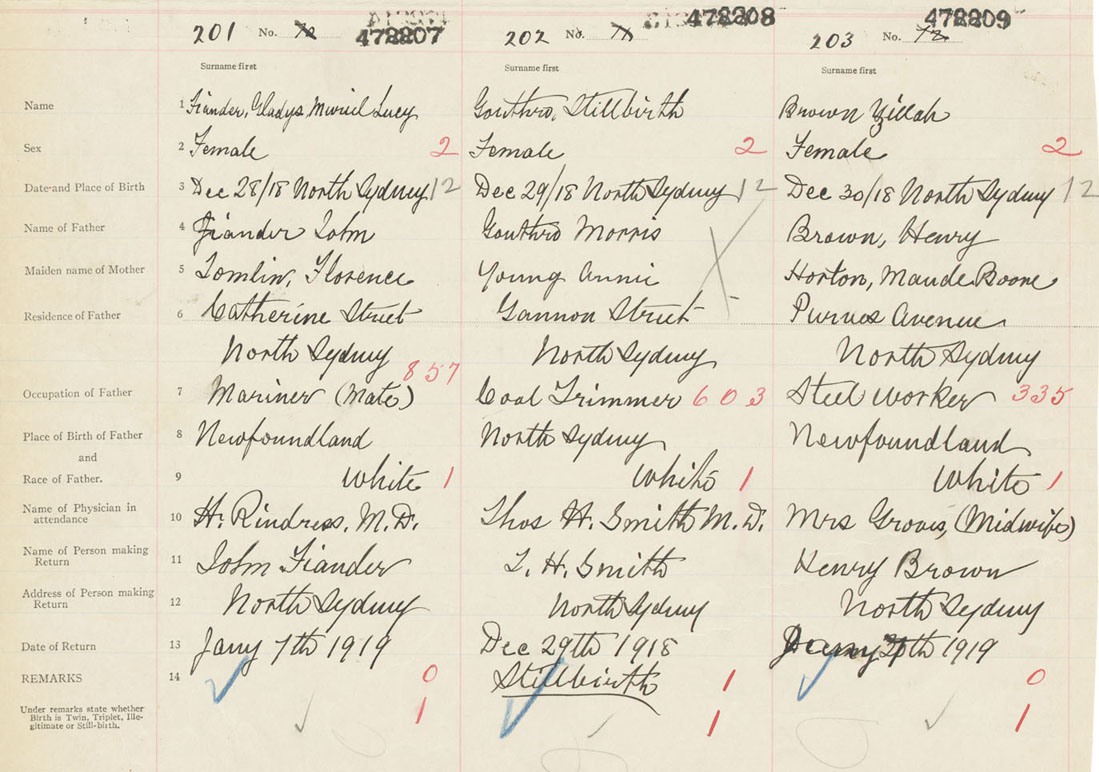 201 No. 472207
202 No. 472208
203 No. 472209
Surname first Surname first Surname first
Name 1 Fiander, Gladys Muriel Lucy Gouthro, Stillbirth Brown Zillah
Sex 2 Female 2 Female 2 Female 2
Date and Place of Birth 3 Dec 28/18 North Sydney 12 Dec 29/18 North Sydney 12 Dec 30/18 North Sydney 12
Name of Father 4 Fiander John Gouthro Morris Brown, Henry
Maiden name of Mother 5 Tomlin, Florence Young Annie Horton, Maude Boone
Residence of Father 6 Catherine Street Gannon Street Purves Avenue
North Sydney North Sydney North Sydney
Occupation of Father 7 Mariner (Mate) 857 Coal Trimmer 603 Steel Worker 335
Place of Birth of Father 8 Newfoundland North Sydney Newfoundland
and
Race of Father. 9 White 1 White 1 White 1
Name of Physician in
attendance 10 H. Rindress, M.D. Thos H. Smith M.D. Mrs Groves, (Midwife)
Name of Person making
Return 11 John Fiander T. H. Smith Henry Brown
Address of Person making
Return 12 North Sydney North Sydney North Sydney
Date of Return 13 Jany 7th 1919 Dec 29th 1918 1919
REMARKS 14 0 Stillbirth 1 0
Under remarks state whether
Birth is Twin, Triplet, Ille-
gitimate or Still-birth. 1 1 1